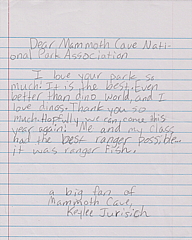 Dear Mammoth Cave Nati-
onal Park Association
I love your park so
much. It is the best. Even
better than dino world, and I
love dinos. Thank you so
much. Hopfully, we can come this
year again! Me and my class
had the best ranger possible..
it was ranger Fish.
a big fan of
Mammoth Cave,
Kylee Jurisich